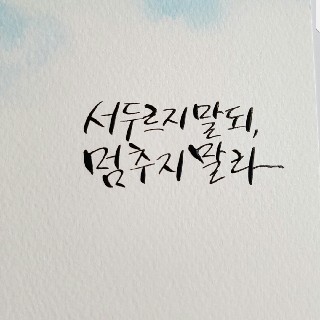 서두르지 말되,
멈추지 말라